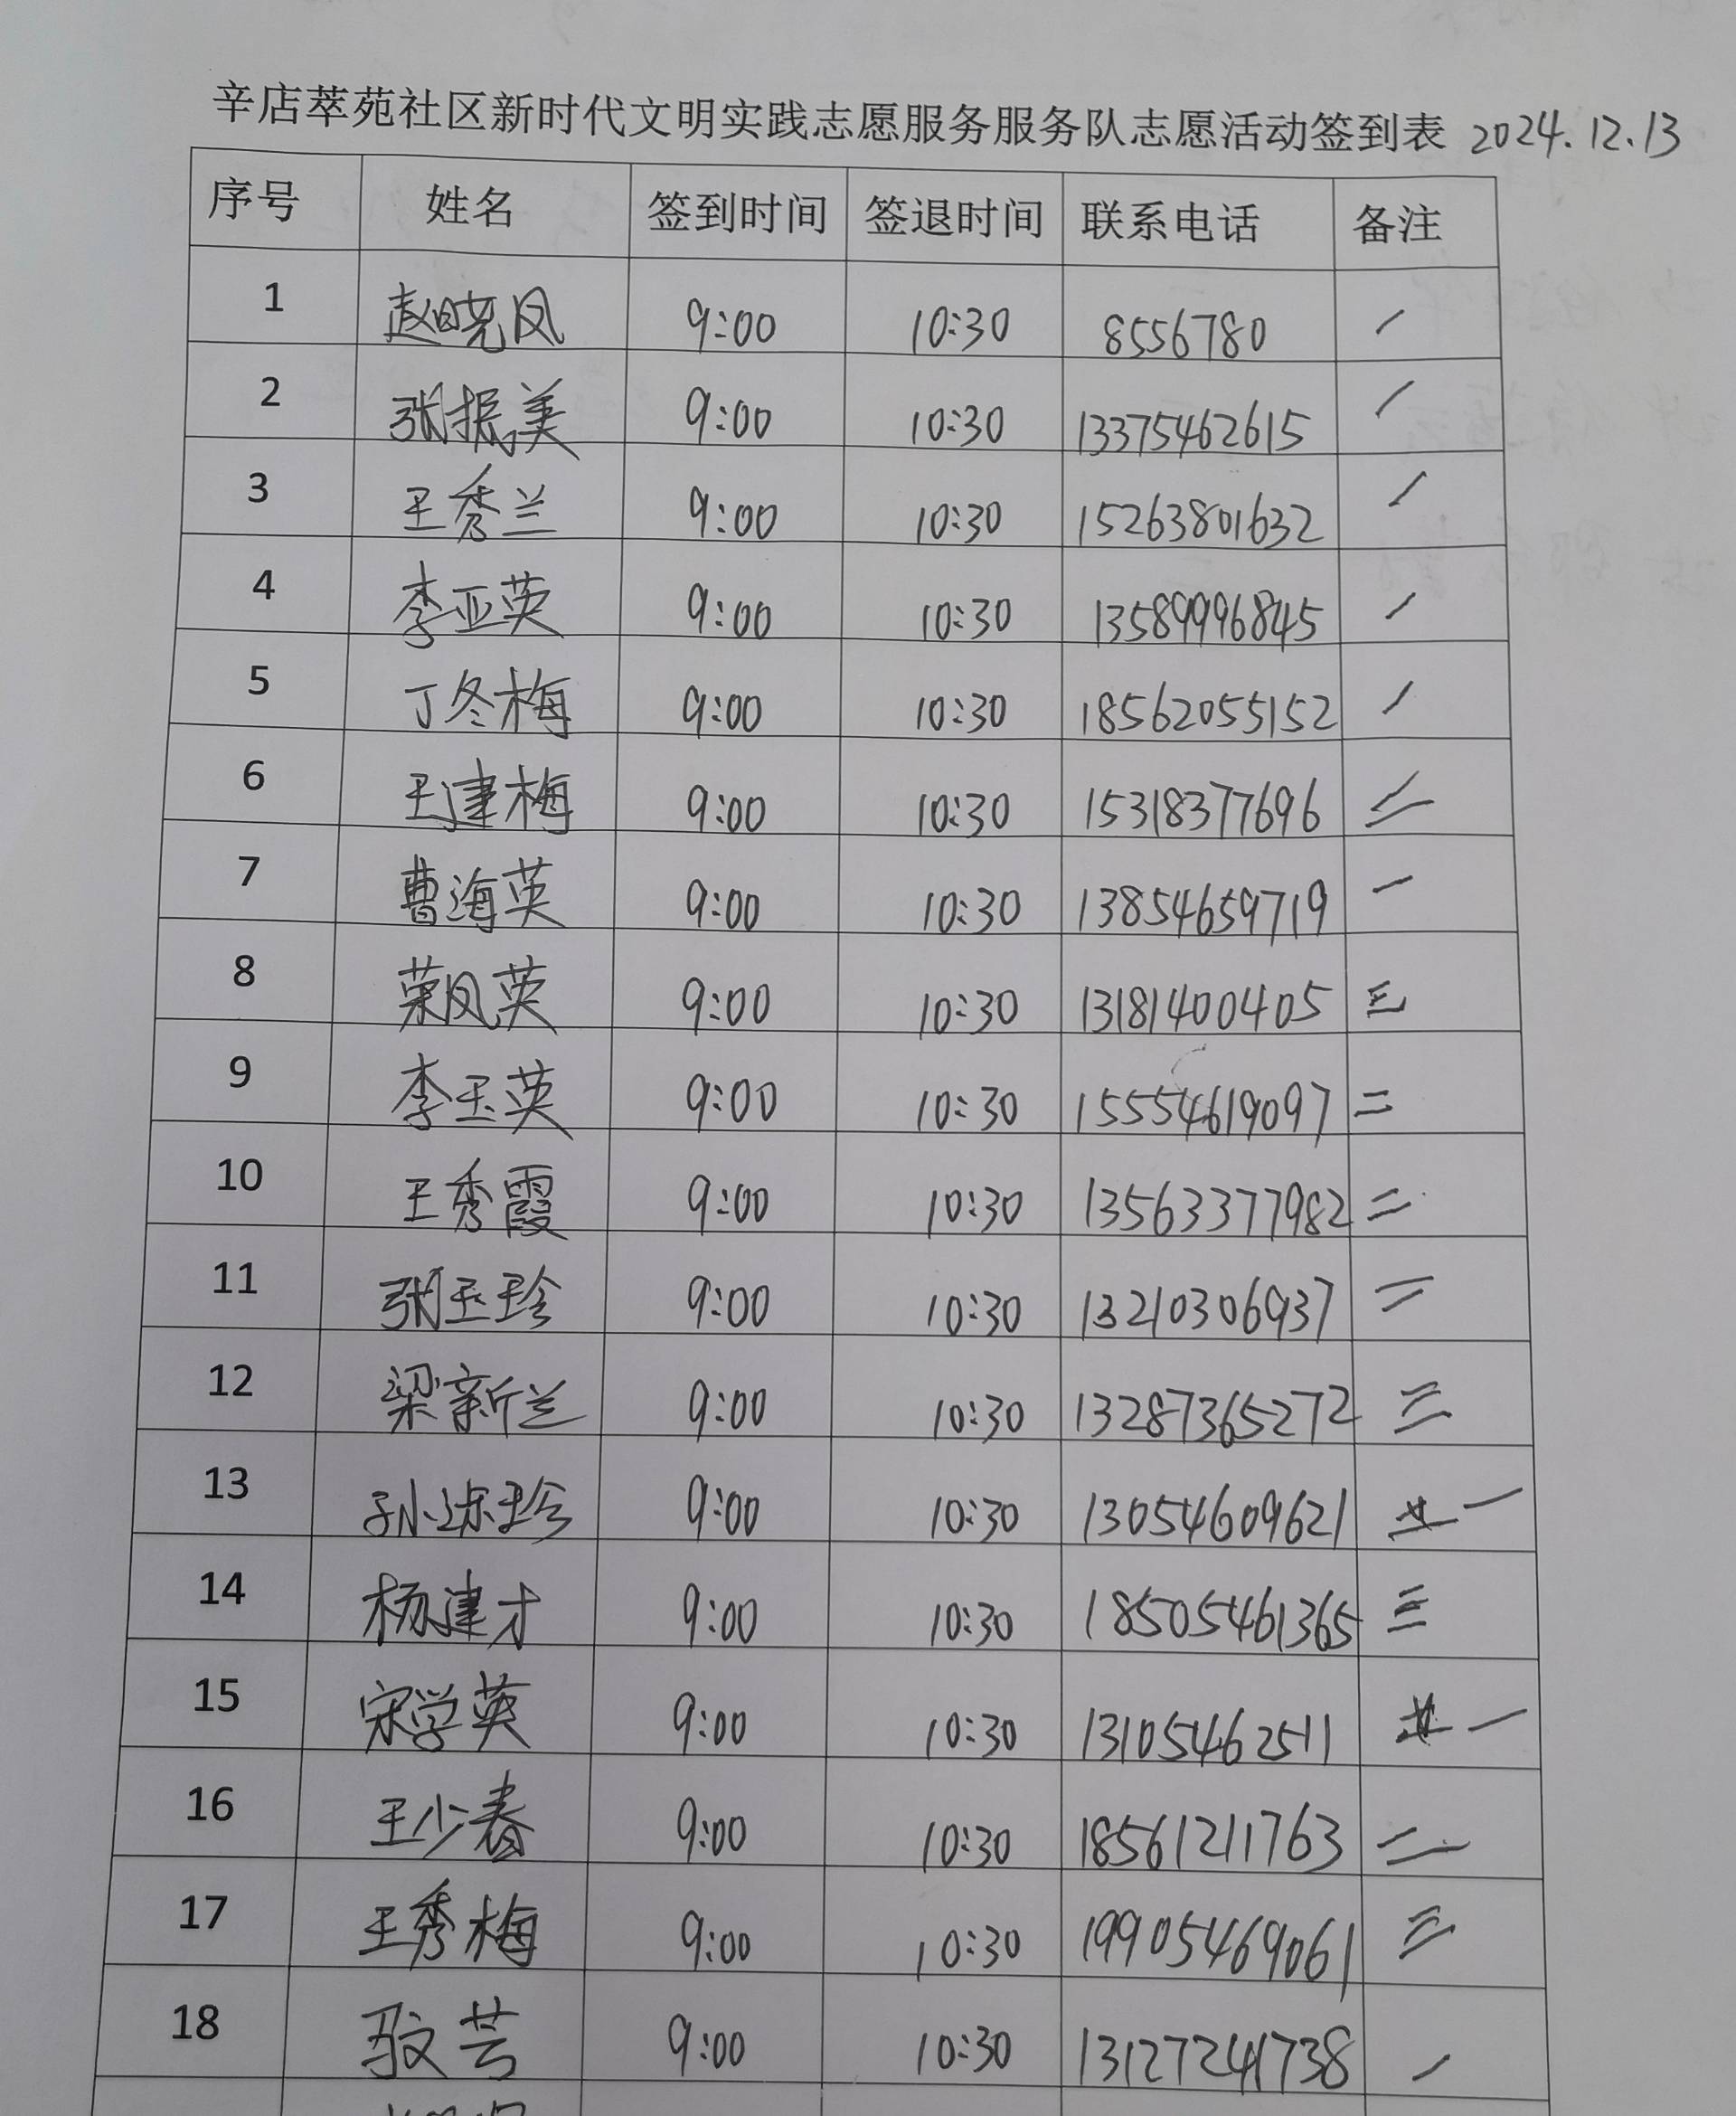 辛店萃苑社区新时代文明实践志愿服务服务队志愿活动签到表 2024.12.13
序号 姓名 签到时间 签退时间 联系电话 备注
1 赵晓凤 9:00 10:30 8556780 一
2 张振美 9:00 10:30 13375462615 一
3 王秀兰 9:00 10:30 15263801632 一
4 李亚英 9:00 10:30 13589996845 一
5 丁冬梅 9:00 10:30 18562055152 一
6 王建梅 9:00 10:30 15318377696 二
7 曹海英 9:00 10:30 13854659719 一
8 荣凤英 9:00 10:30 13181400405 三
9 李玉英 9:00 10:30 15554619097 二
10 王秀霞 9:00 10:30 13563377982 二
11 张玉珍 9:00 10:30 13210306937 二
12 梁新兰 9:00 10:30 13287365272 三
13 孙 珍 9:00 10:30 13054609621 一
14 杨建才 9:00 10:30 18505461365 三
15 宋学英 9:00 10:30 13105462511 一
16 王少春 9:00 10:30 18561211763 二
17 王秀梅 9:00 10:30 19905469061 三
18 9:00 10:30 13127241738 一